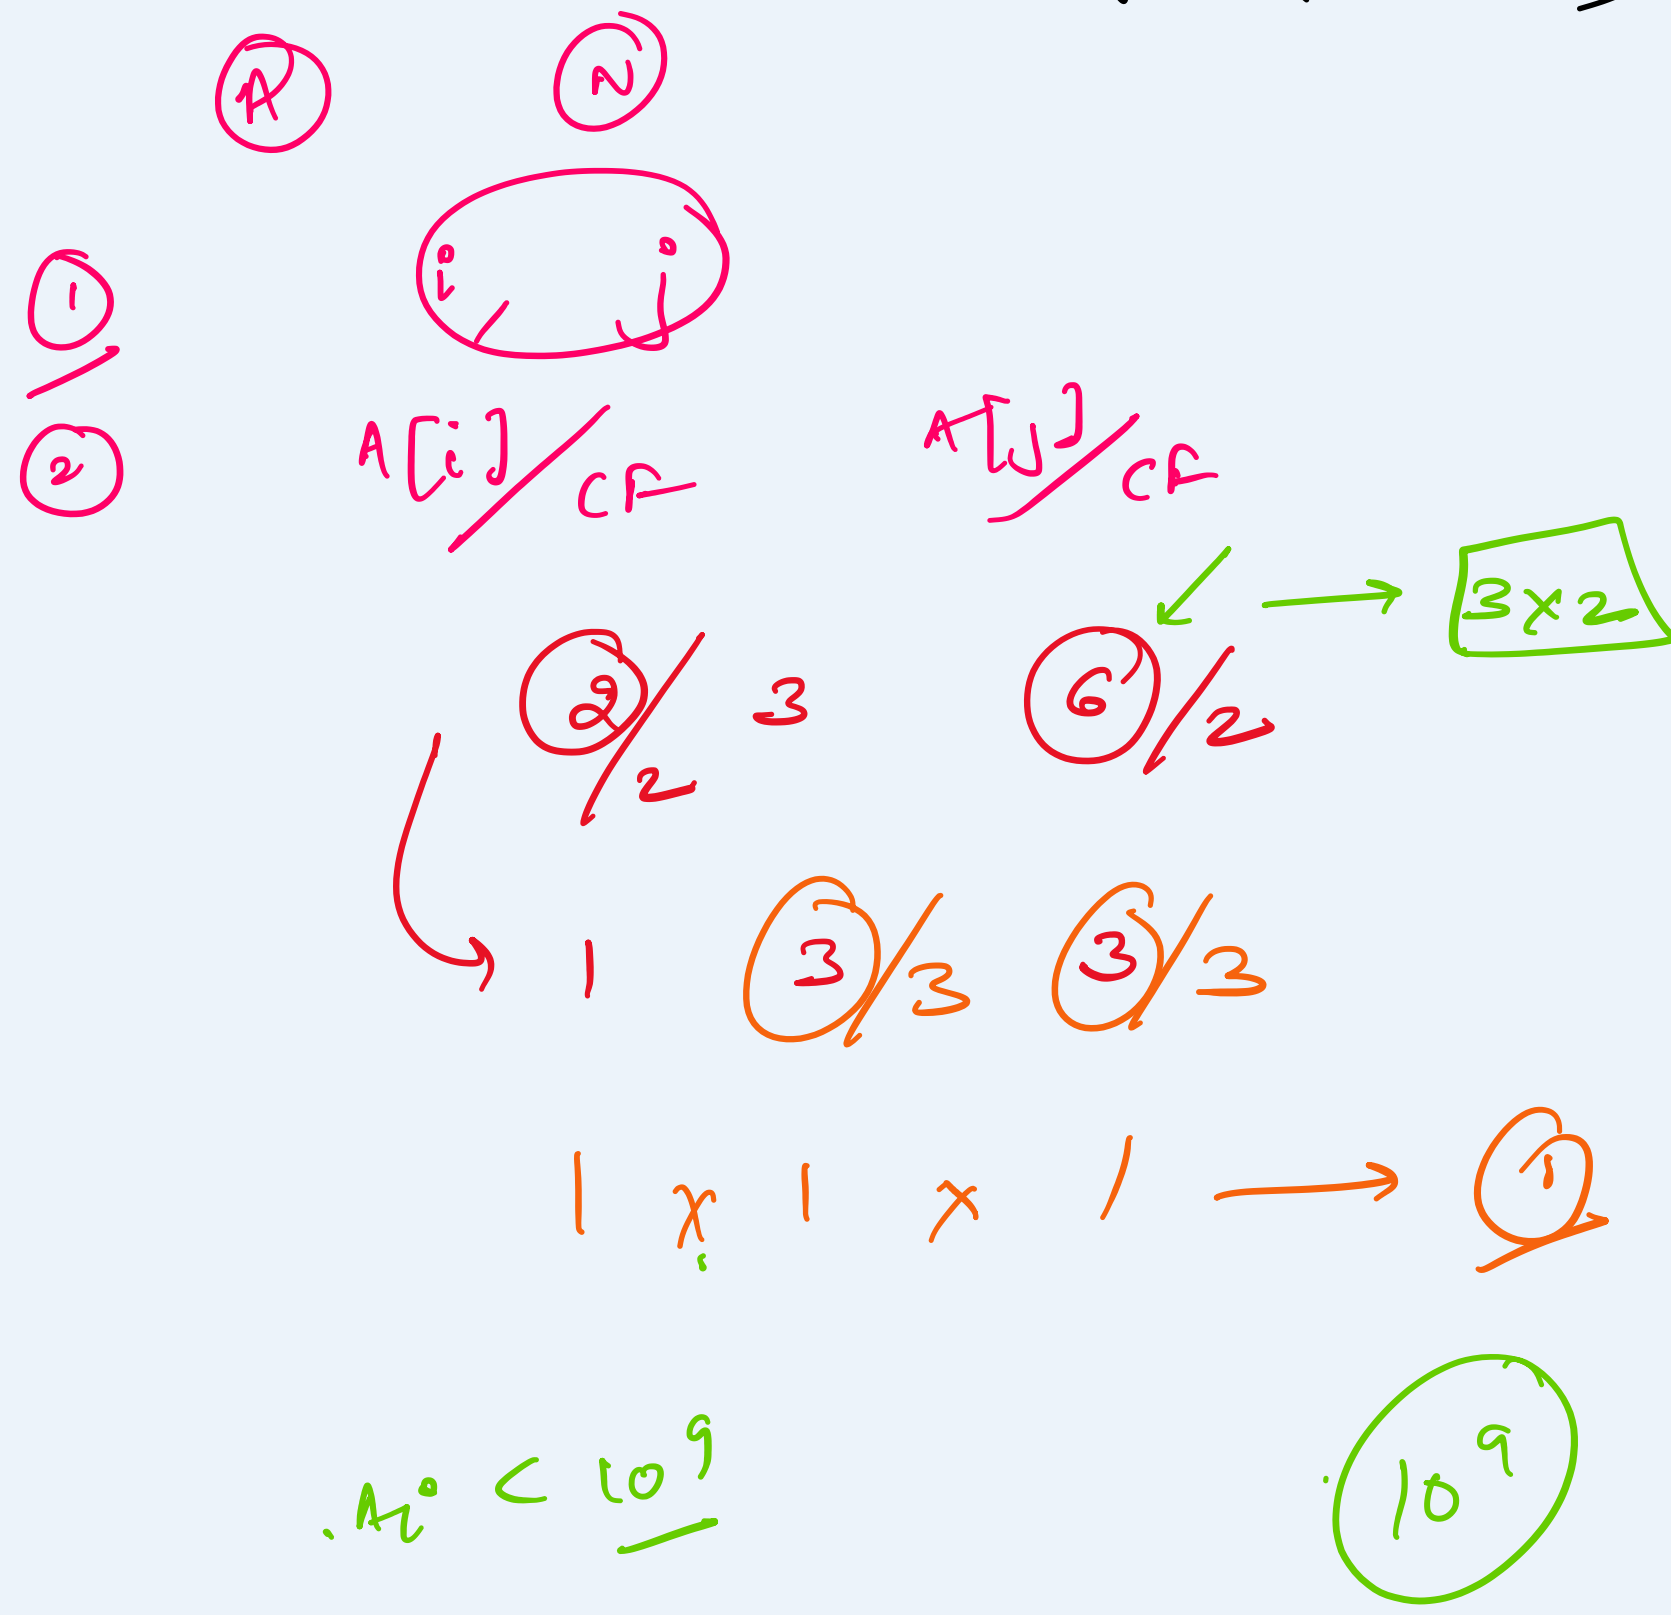 A N
i j
1
2
A[i]/CF A[j]/CF
3x2
2/2 3 6/2
1 3/3 3/3
1 x 1 x 1 → 1
Ai < 10^9 10^9